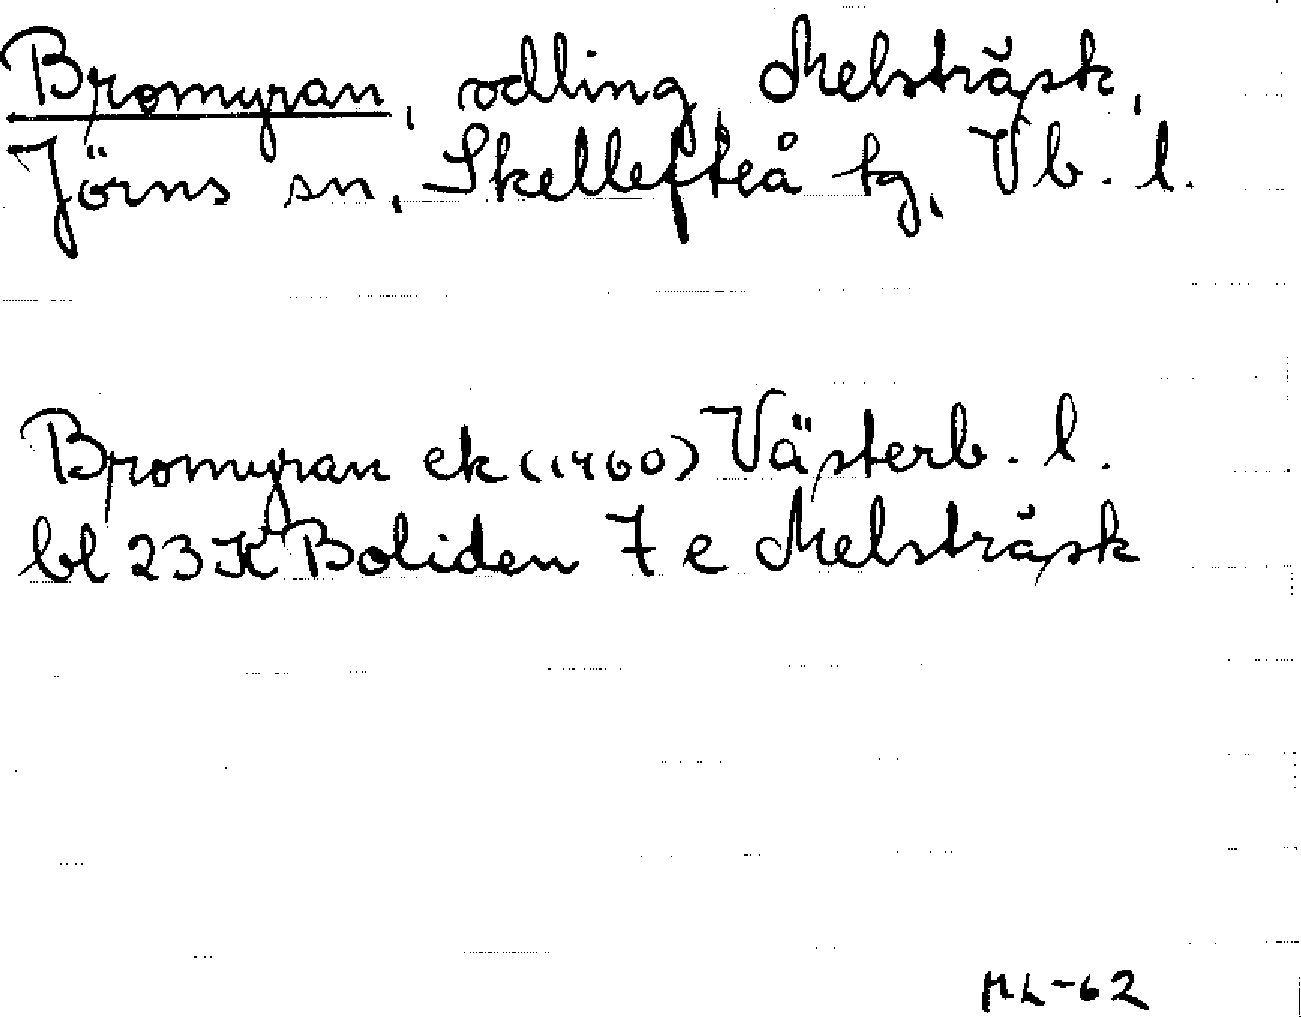 Bromyran, odling Melsträsk,
Jörns sn, Skellefteå tg, Vb. l.
Bromyran ek (1960) Västerb. l.
bl 23 K Boliden 7 e Melsträsk
ML-62